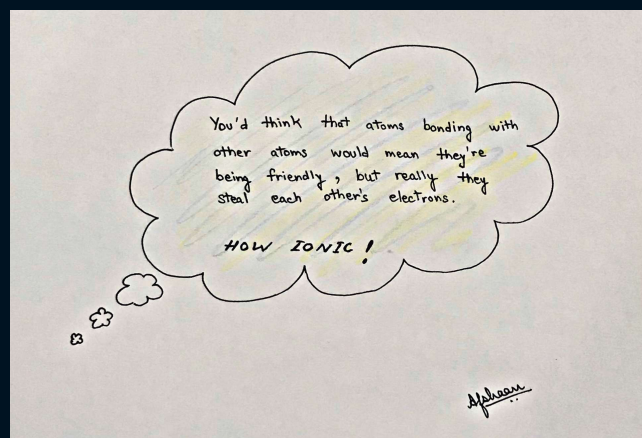 You'd think that atoms bonding with
other atoms would mean they're
being friendly, but really they
steal each other's electrons.
HOW IONIC!
Afsheen